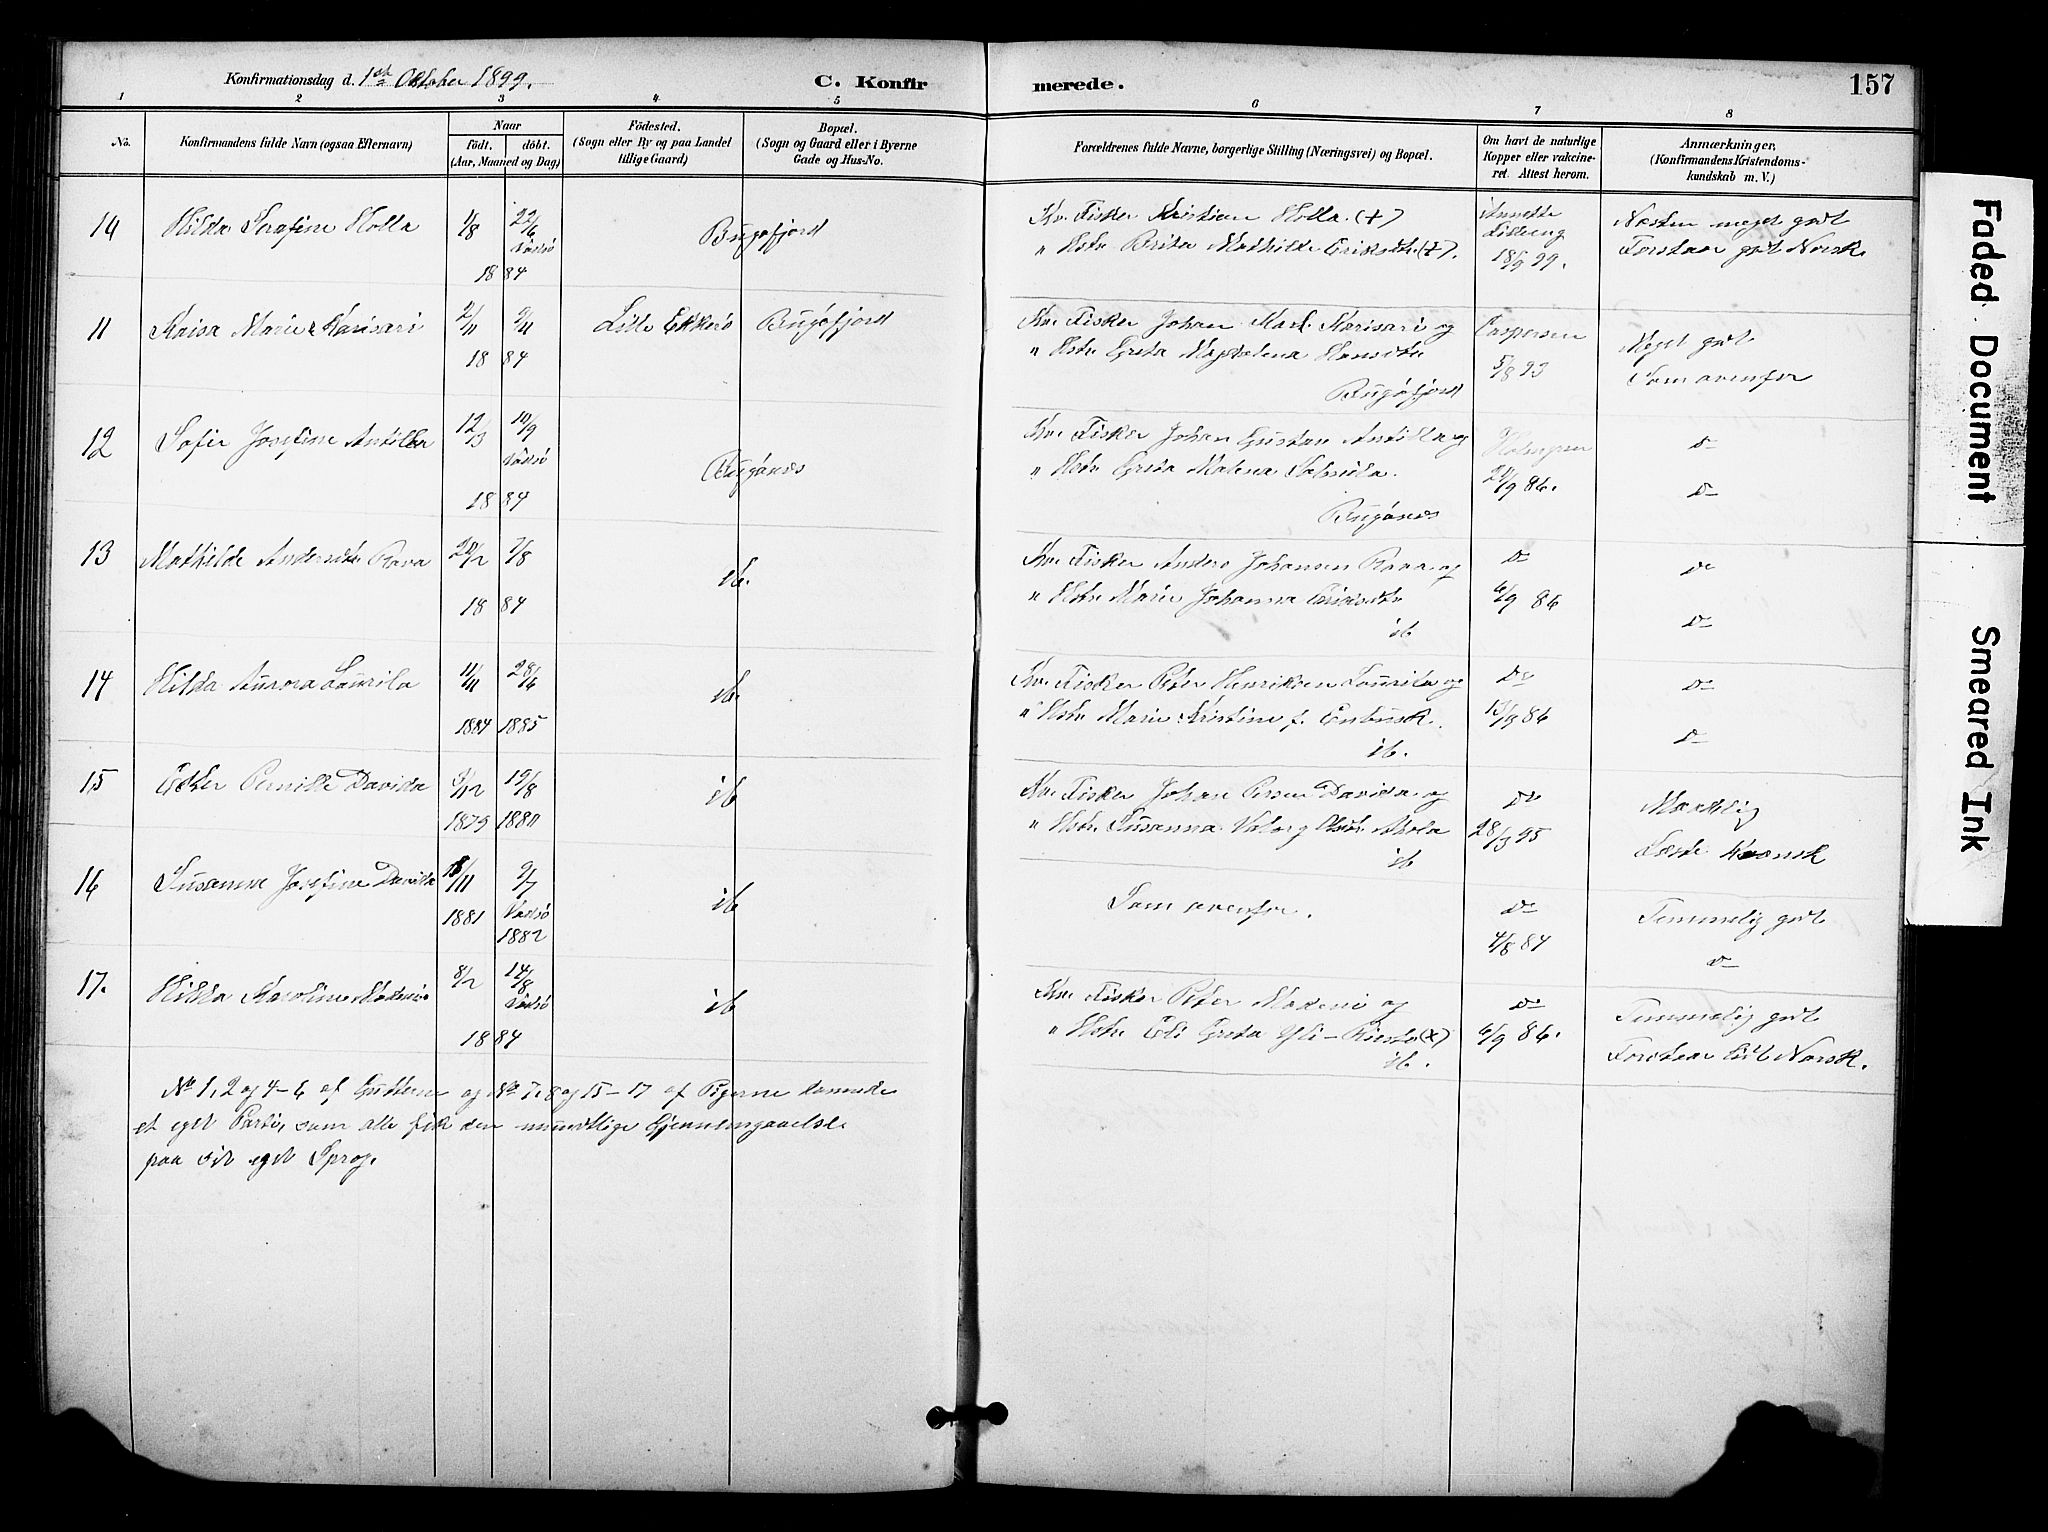 Konfirmationsdag d. 1ste Oktober 1899.
C. Konfirmerede.
157
1 2 3 4 5 6 7 8
No.
Konfirmandens fulde Navn (ogsaa Efternavn)
Naar
födt. döbt.
(Aar, Maaned og Dag)
Födested.
(Sogn eller By og paa Landet
tillige Gaard)
Bopæl.
(Sogn og Gaard eller i Byerne
Gade og Hus-No.
Forældrenes fulde Navne, borgerlige Stilling (Næringsvei) og Bopæl.
Om havt de naturlige
Kopper eller vakcine-
ret. Attest herom.
Anmærkninger,
(Konfirmandens Kristendoms-
kundskab m. V.)
Hilda Serafine Holla
1/8 22/6
Vadsö
18 84
Bugöfjord
Kv. Fisker Kristian Holla (+)
" Hstr. Brita Mathilde Eriksdtr. (+).
18/9 99.
Næsten meget godt
Forstaar godt Norsk
11
Kaisa Marie Karisari
2/11 9/11
18 84
Lille Ekkerö
Bugöfjord
Kv. Fisker Johan Karisari og
" Hstr. Greta Magdalena Hansdtr.
Bugöfjord
Caspersen
5/8 93
Meget godt
Som ovenfor
12
Sofie Josefine Anttilla
12/3 10/9
Vadsö
18 84
Bugönes
Kv. Fisker Johan Gustav Anttilla og
" Hstr. Greta Malena
Bugönes
Holmgren
21/9 86.
do
do
13
Mathilde Andersdtr. Rava
20/2 7/8
18 84
ib.
Kv. Fisker Anders Johansen Rava og
" Hstr. Marie Johanna
ib
do
6/9 86
do
do
14
Hilda Aurora Laurila
11/11 28/6
1884 1885
ib.
Kv. Fisker Peter Henriksen Laurila og
" Hstr. Marie Kristine f. Enbusk.
ib.
do
13/9 86
do
do
15
Ester Pernille Davida
3/12 19/8
1879 1880
ib
Kv. Fisker Johan Persen Davida og
" Hstr. Susanna Valborg
ib
do
28/3 95
Mærkelig
Læste Kvænsk
16
Susanna Josefine Davida
18/11 9/7
1881 Vadsö
1882
ib
Som ovenfor.
do
4/8 84
Temmelig godt
do
17.
Hilda Karoline Madeni
8/2 14/8
Vadsö
18 84
ib
Kv. Fisker Peter Madeni og
" Hstr. Eli Greta Yli-
ib.
do
6/9 86.
Temmelig godt
Forstaar lidt Norsk.
No 1, 2 og 4-6 af Gutterne og No 7, 8 og 15-17 af Pigerne dannede
et eget Parti, som alle fik den mundtlige Gjennemgaaelse
paa sit eget Sprog.
Faded Document
Smeared Ink